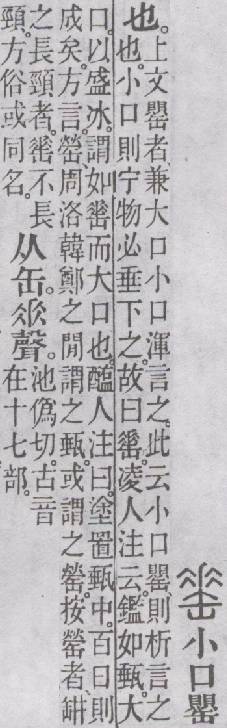 𦉈小口罌
也。
上文罌者、兼大口小口渾言之。此云小口罌、則析言之
也。小口則宁物必垂下之。故曰𦉈。凌人注云。鑑如甀。大
口。以盛冰。謂如𦉈而大口也。醢人注曰。塗置甀中。百日則
成矣。方言。罃。周洛韓鄭之閒謂之甀。或謂之罃。按罃者、缾
之長頸者。𦉈不長
頸。方俗或同名。
从缶。𠂹聲。
池僞切。古音
在十七部。